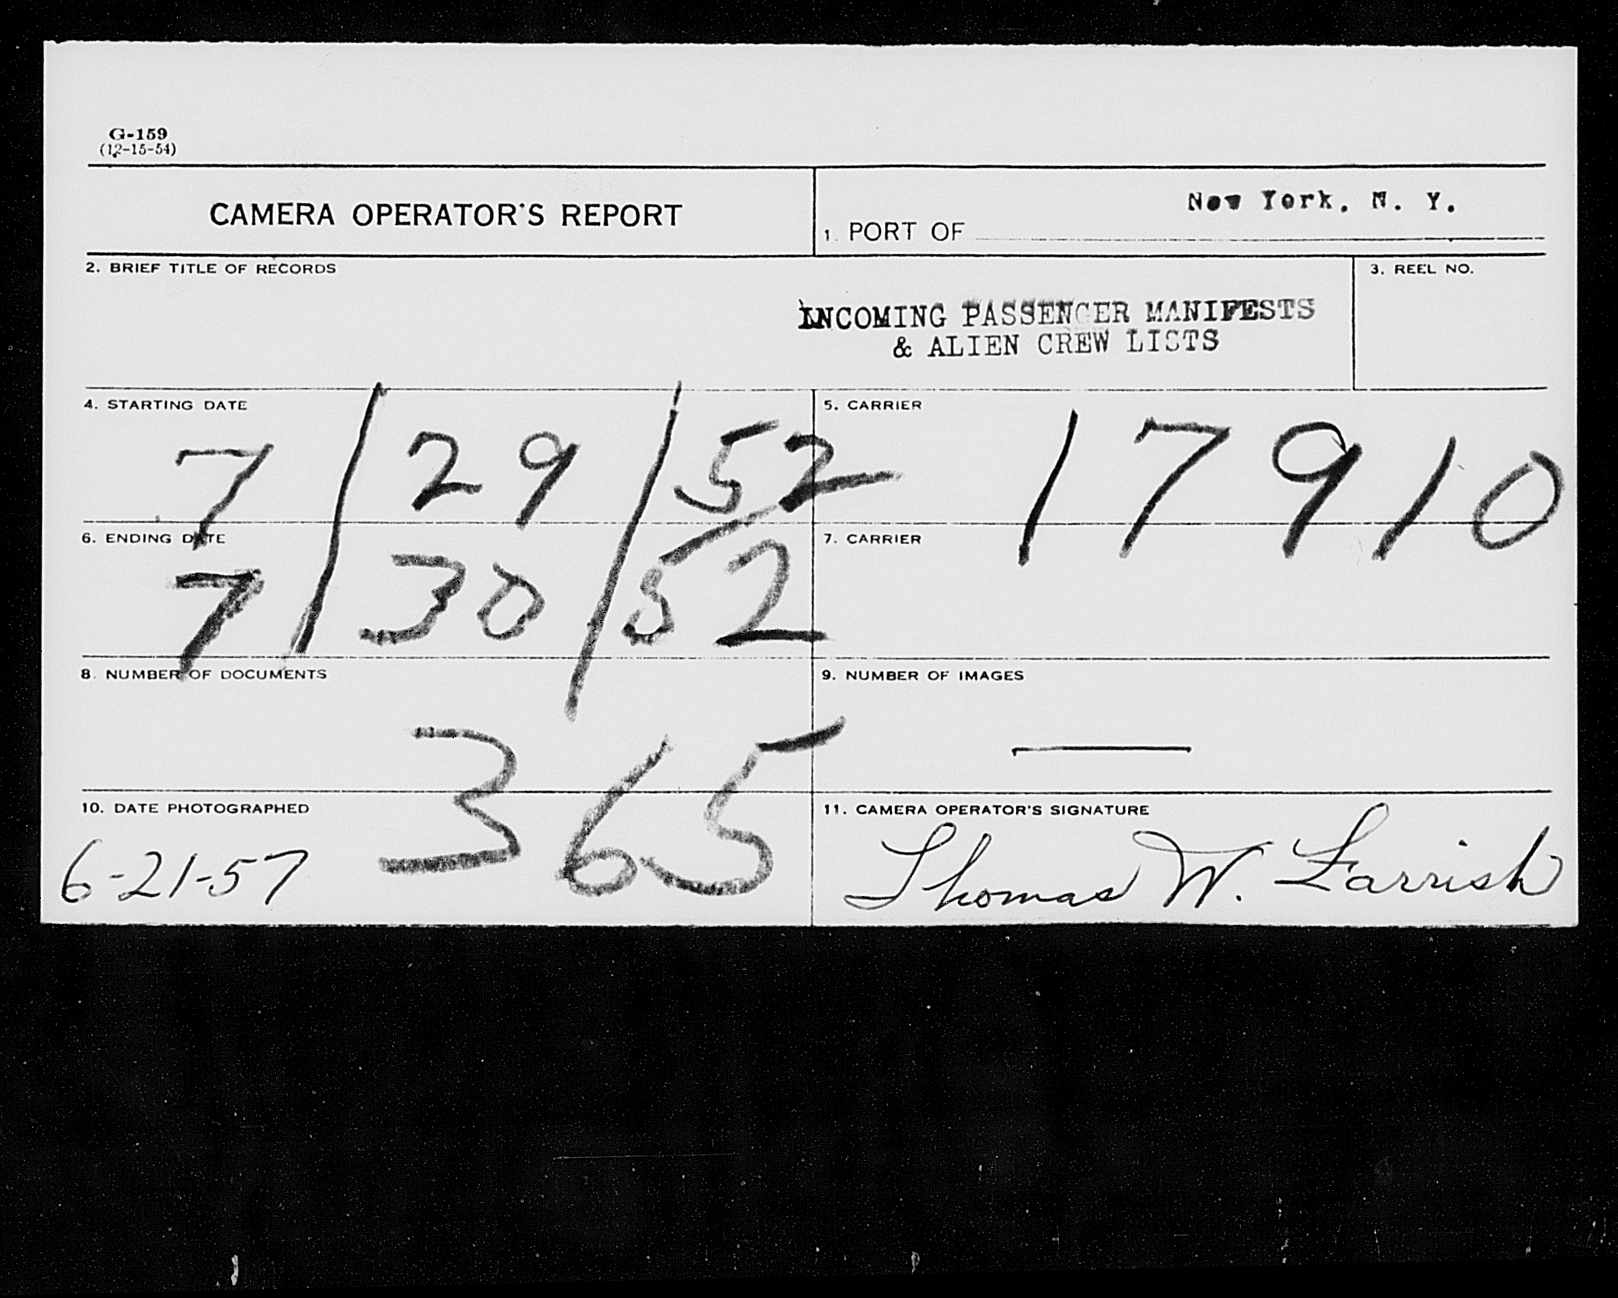 G-159
(12-15-54)
CAMERA OPERATOR'S REPORT
1. PORT OF New York, N. Y.
2. BRIEF TITLE OF RECORDS
INCOMING PASSENGER MANIFESTS
& ALIEN CREW LISTS
3. REEL NO.
4. STARTING DATE
7/29/52
5. CARRIER
17910
6. ENDING DATE
7/30/52
7. CARRIER
8. NUMBER OF DOCUMENTS
365
9. NUMBER OF IMAGES
—
10. DATE PHOTOGRAPHED
6-21-57
11. CAMERA OPERATOR'S SIGNATURE
Thomas W. Farrish